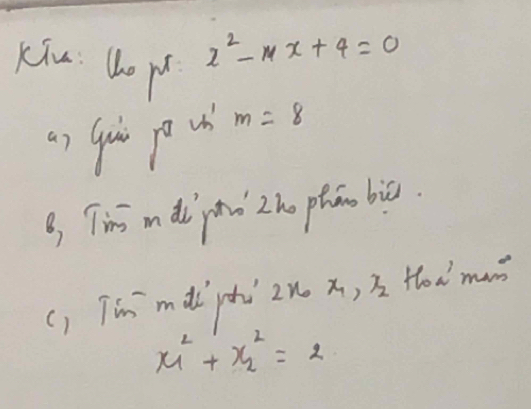 Ktra: Cho pt: x² - mx + 4 = 0
a, Giải pt với m = 8
b, Tìm m để pt có 2 no phân biệt.
c, Tìm m để pt có 2 no x₁, x₂ thoả mãn
x₁² + x₂² = 2